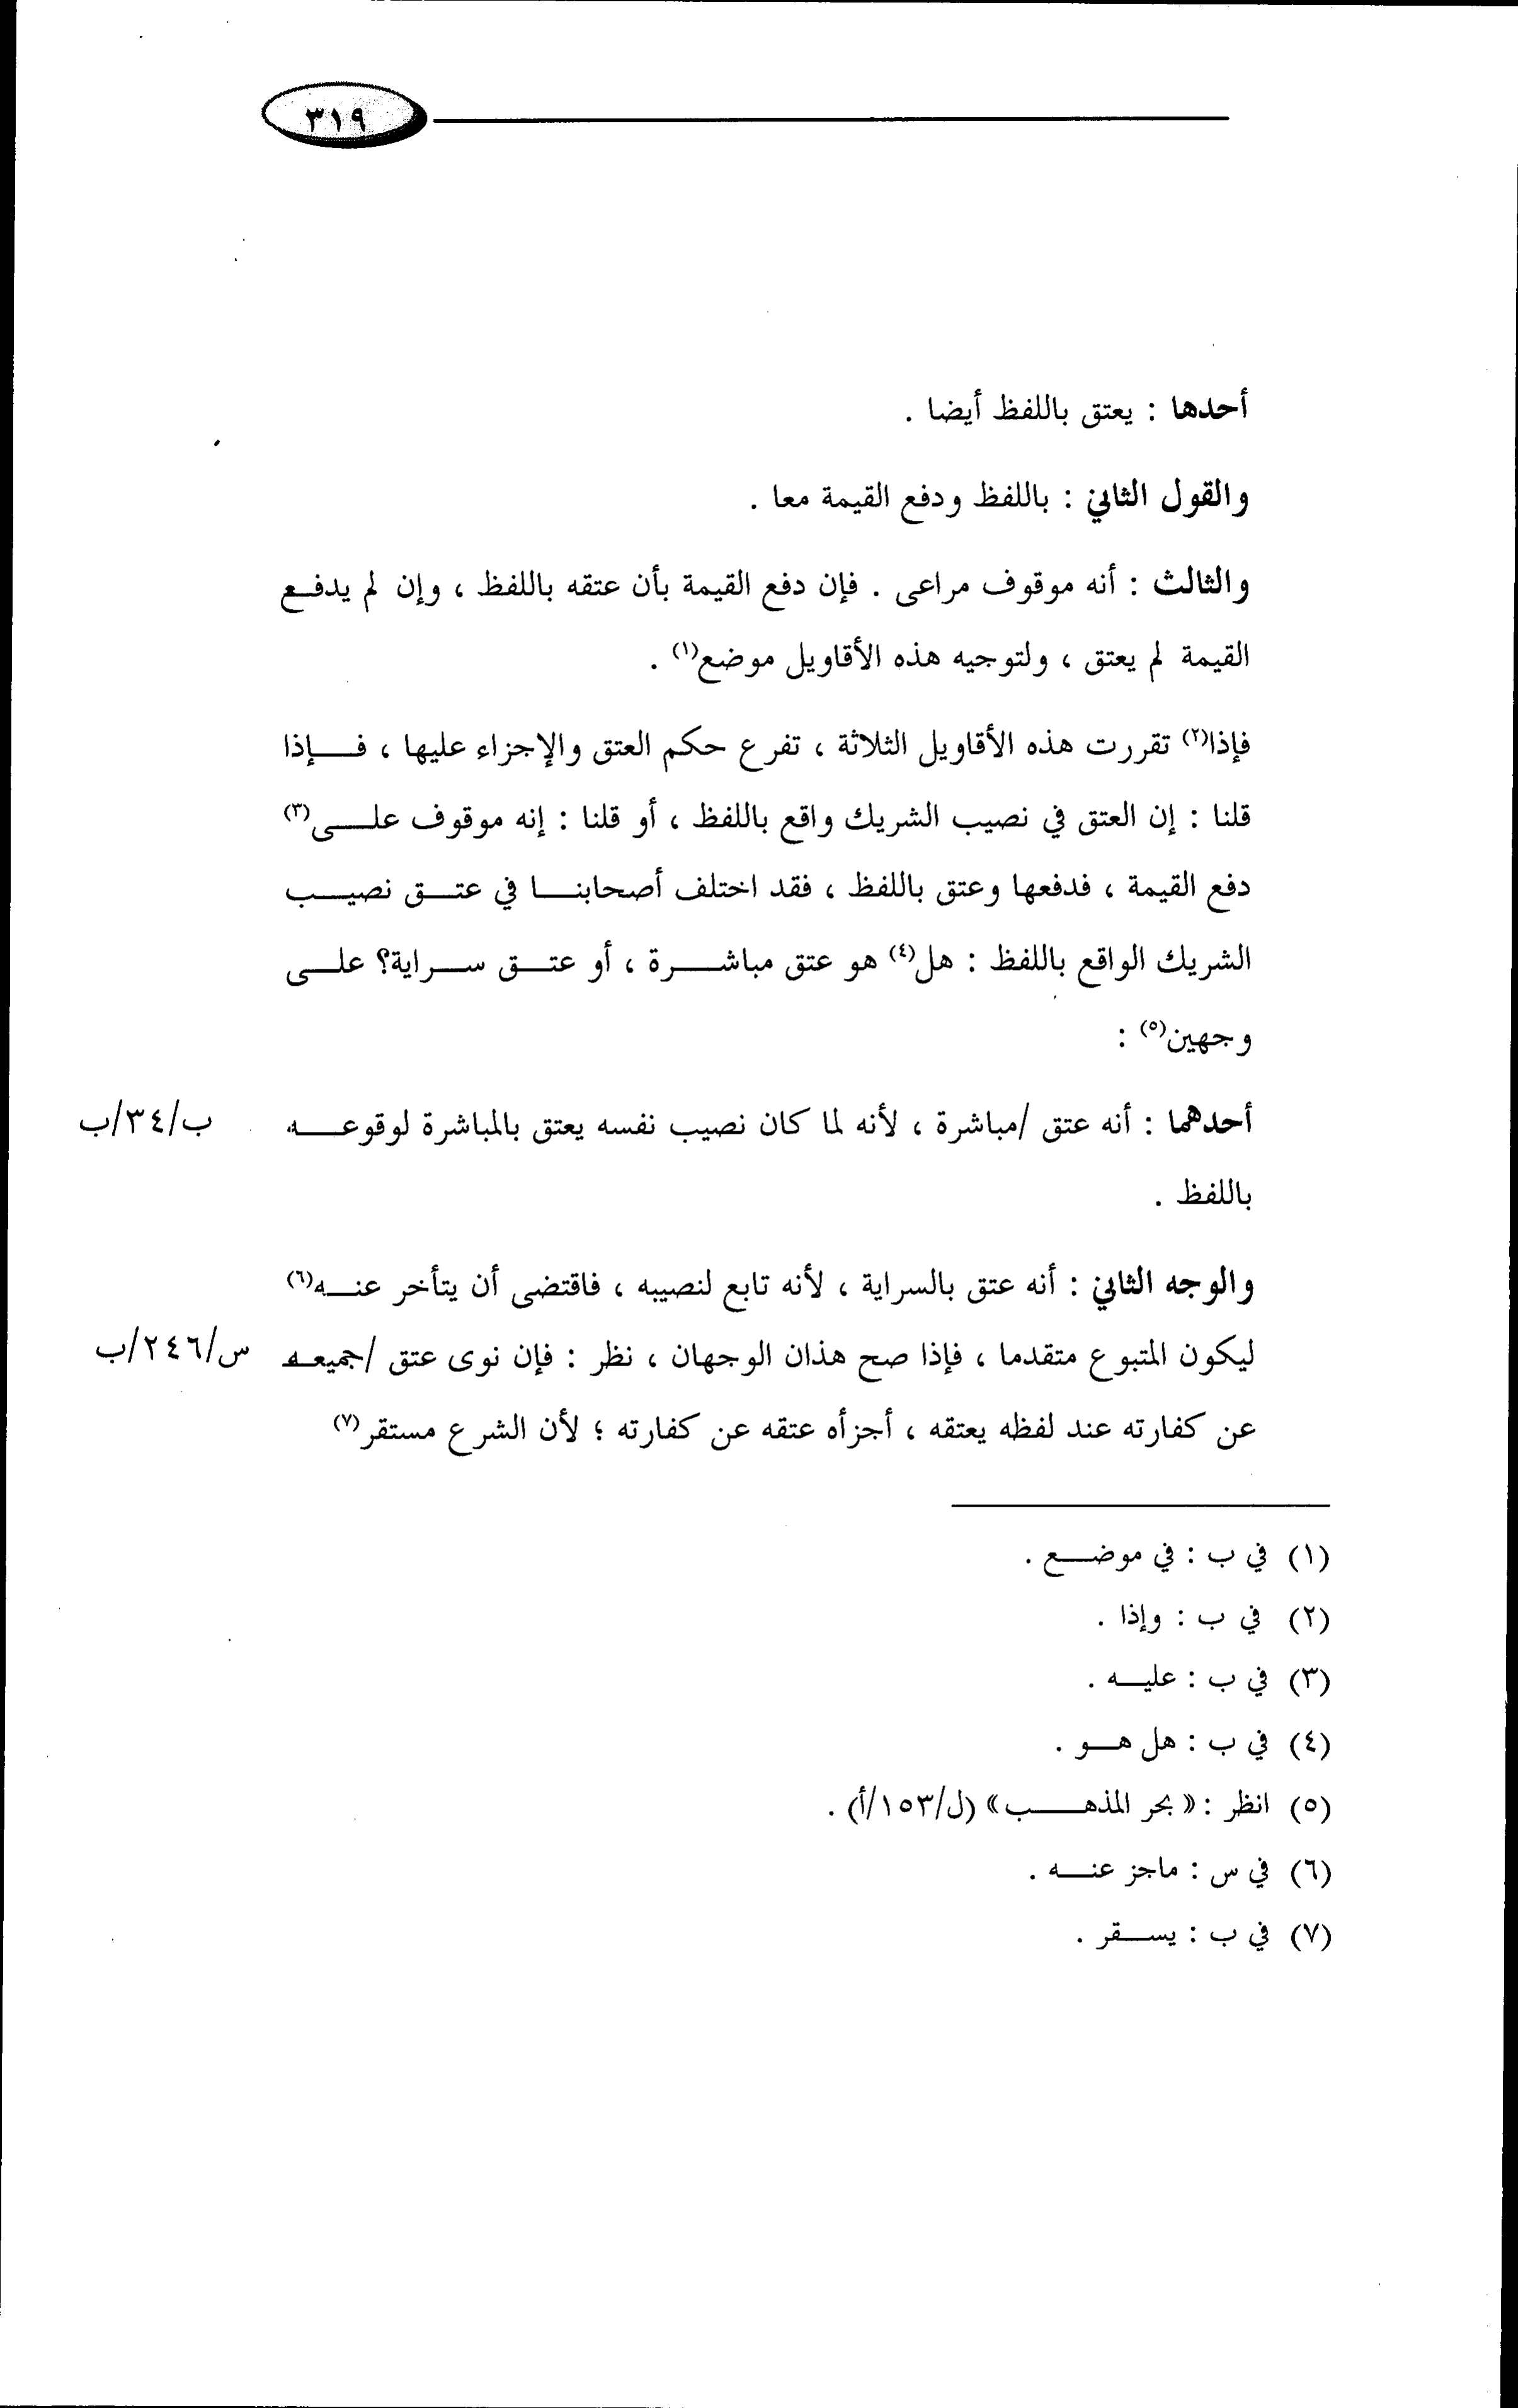 ٣١٩
أحدها : يعتق باللفظ أيضا .
والقول الثاني : باللفظ ودفع القيمة معا .
والثالث : أنه موقوف مراعى . فإن دفع القيمة بأن عتقه باللفظ ، وإن لم يدفع
القيمة لم يعتق ، ولتوجيه هذه الأقاويل موضع(١) .
فإذا(٢) تقررت هذه الأقاويل الثلاثة ، تفرع حكم العتق والإجزاء عليها ، فإذا
قلنا : إن العتق في نصيب الشريك واقع باللفظ ، أو قلنا : إنه موقوف على(٣)
دفع القيمة ، فدفعها وعتق باللفظ ، فقد اختلف أصحابنا في عتق نصيب
الشريك الواقع باللفظ : هل(٤) هو عتق مباشرة ، أو عتق سراية؟ على
وجهين(٥) :
أحدهما : أنه عتق /مباشرة ، لأنه لما كان نصيب نفسه يعتق بالمباشرة لوقوعه ب/٣٤/ب
باللفظ .
والوجه الثاني : أنه عتق بالسراية ، لأنه تابع لنصيبه ، فاقتضى أن يتأخر عنه(٦)
ليكون المتبوع متقدما ، فإذا صح هذان الوجهان ، نظر : فإن نوى عتق /جميعه س/٢٤٦/ب
عن كفارته عند لفظه يعتقه ، أجزأه عتقه عن كفارته ؛ لأن الشرع مستقر(٧)
(١) في ب : في موضع .
(٢) في ب : وإذا .
(٣) في ب : عليه .
(٤) في ب : هل هو .
(٥) انظر : « بحر المذهب » (ل/١٥٣/أ) .
(٦) في س : ماجز عنه .
(٧) في ب : يسقر .